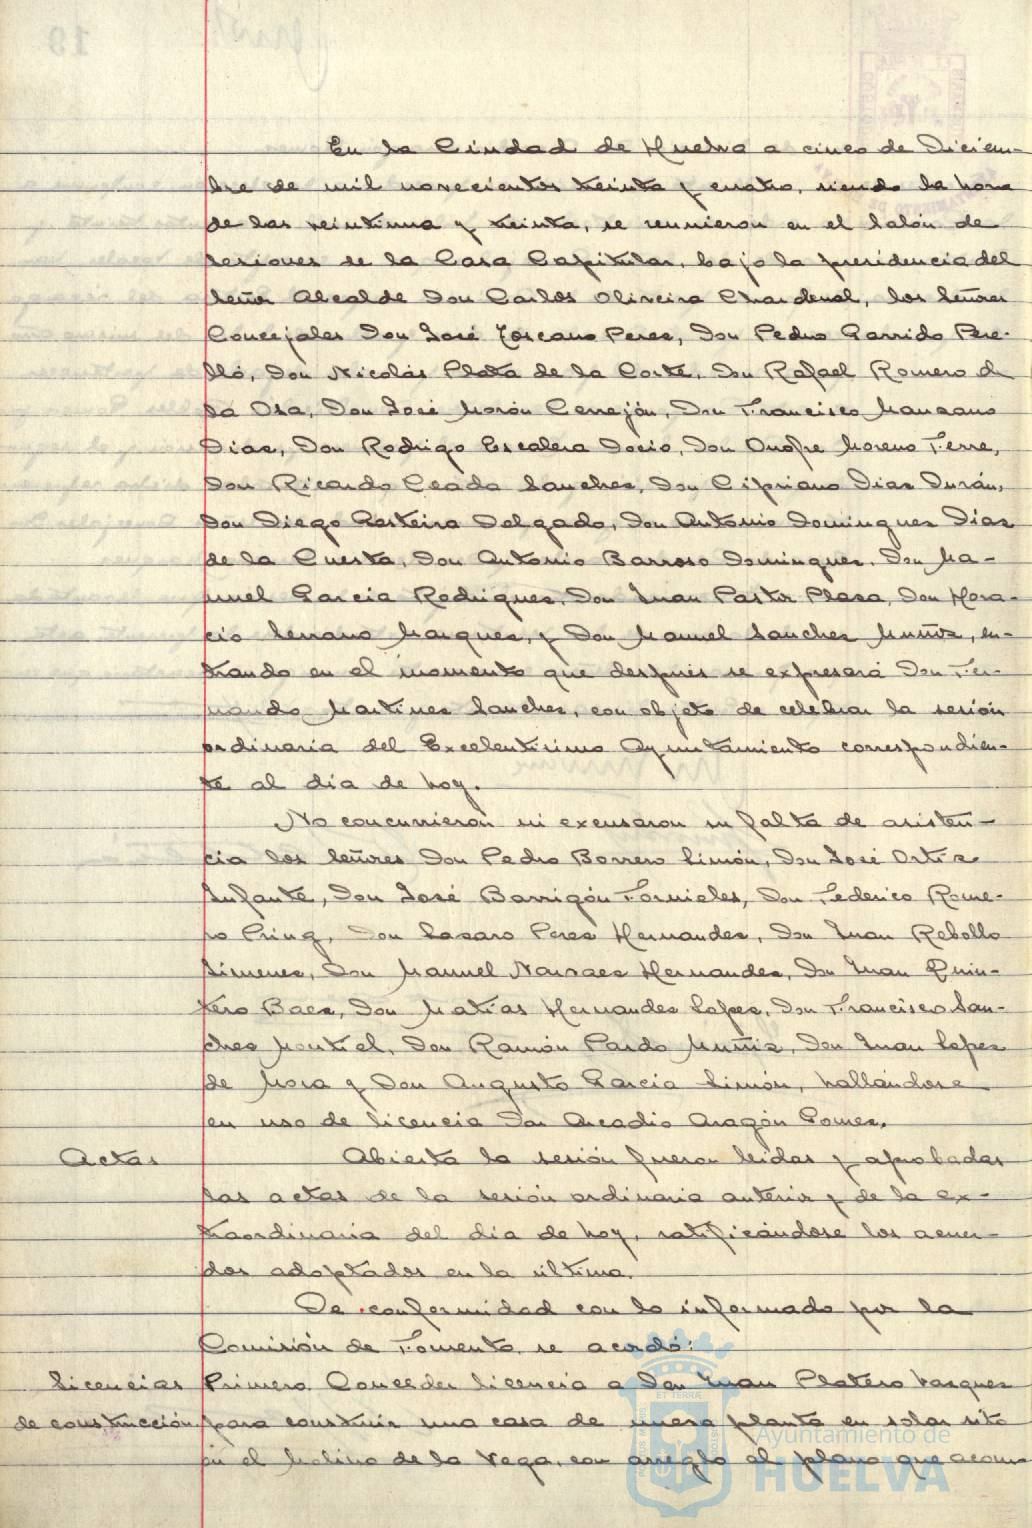 En la Ciudad de Huelva a cinco de Diciem-
bre de mil novecientos treinta y cuatro, siendo la hora
de las veintiuna y treinta, se reunieron en el Salón de
sesiones de la Casa Capitular, bajo la presidencia del
Señor Alcalde Don Carlos Oliveira Chardenal, los Señores
Concejales Don José Toscano Perez, Don Pedro Garrido Pere-
lló, Don Nicolás Plata de la Corte, Don Rafael Romero de
la Osa, Don José Morón Cerrejón, Don Francisco Manzano
Diaz, Don Rodrigo Escalera Socio, Don Onofre Moreno Ferre,
Don Ricardo Ceada Sanchez, Don Cipriano Diaz Durán,
Don Diego Garteira Delgado, Don Antonio Dominguez Diaz
de la Cuesta, Don Antonio Barroso Dominguez, Don Ma-
nuel Garcia Rodriguez, Don Juan Pastor Plaza, Don Hora-
cio Serrano Marquez, y Don Manuel Sanchez Muñoz, en-
trando en el momento que después se expresará Don Fer-
nando Martinez Sanchez, con objeto de celebrar la sesión
ordinaria del Excelentisimo Ayuntamiento correspondien-
te al día de hoy.
No concurrieron ni excusaron su falta de asisten-
cia los Señores Don Pedro Borrero Limón, Don José Ortiz
Infante, Don José Barrigón Fornieles, Don Federico Rome-
ro Pring, Don Lazaro Perez Hernandez, Don Juan Rebollo
Jimenez, Don Manuel Narvaez Hernandez, Don Juan Quin-
tero Baez, Don Matias Hernandez Lopez, Don Francisco San-
chez Montiel, Don Ramón Pardo Muñiz, Don Juan Lopez
de Mora y Don Augusto Garcia Limón, hallándose
en uso de licencia Don Arcadio Aragón Gomez.
Actas Abierta la sesión fueron leidas y aprobadas
las actas de la sesión ordinaria anterior y de la ex-
traordinaria del día de hoy, ratificándose los acuer-
dos adoptados en la última.
De conformidad con lo informado por la
Comisión de Fomento, se acordó:
Licencias Primero. Conceder licencia a Don Juan Platero Vazquez
de construcción para construir una casa de nueva planta en solar sito
en el Molino de la Vega, con arreglo al plano que acom-
Ayuntamiento de
HUELVA